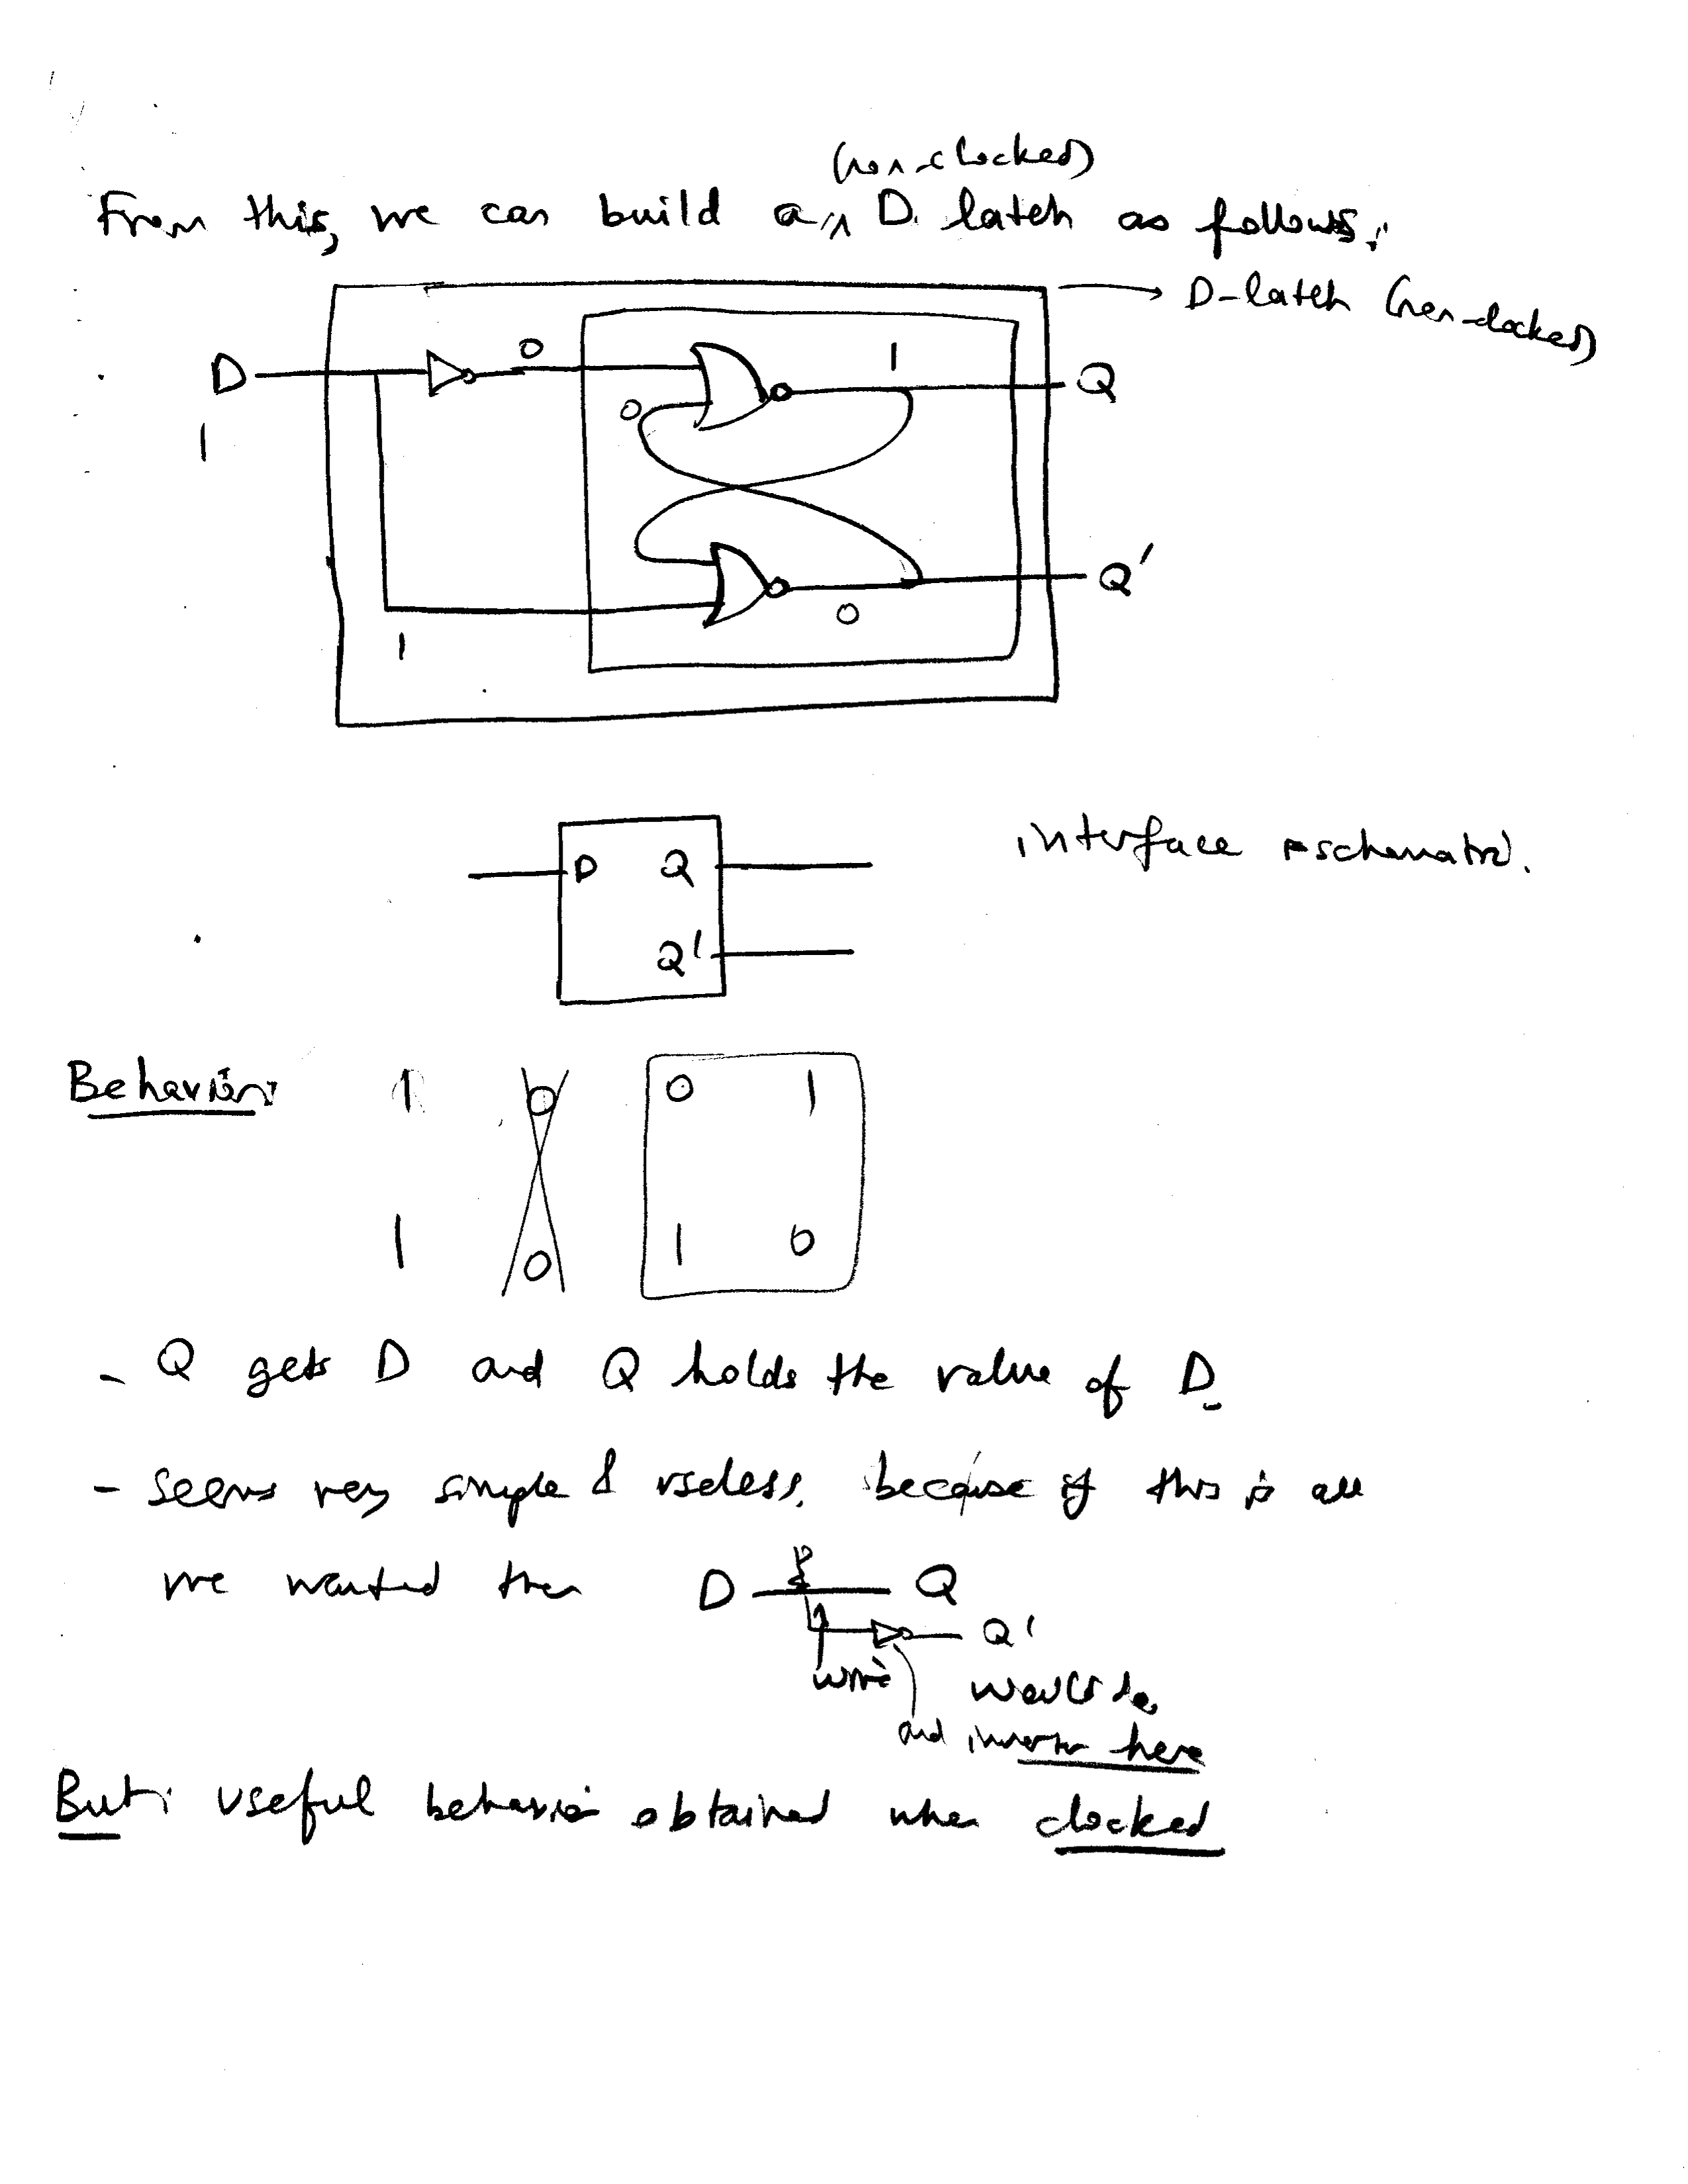 (non-clocked)
From this, we can build a D latch as follows:
D-latch (non-clocked)
D 0 1 Q
1 0
Q'
1 0
D Q
Q'
interface schematic.
Behavior:
1 0 0 1
1 0 1 0
- Q gets D and Q holds the value of D.
- seems very simple & useless, because if this is all
we wanted then D Q
Q'
wire would be
and inverter here
But: useful behavior obtained when clocked